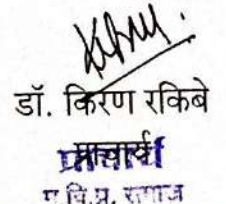 डॉ. किरण रकिबे
प्राचार्य
म.वि.प्र. समाज